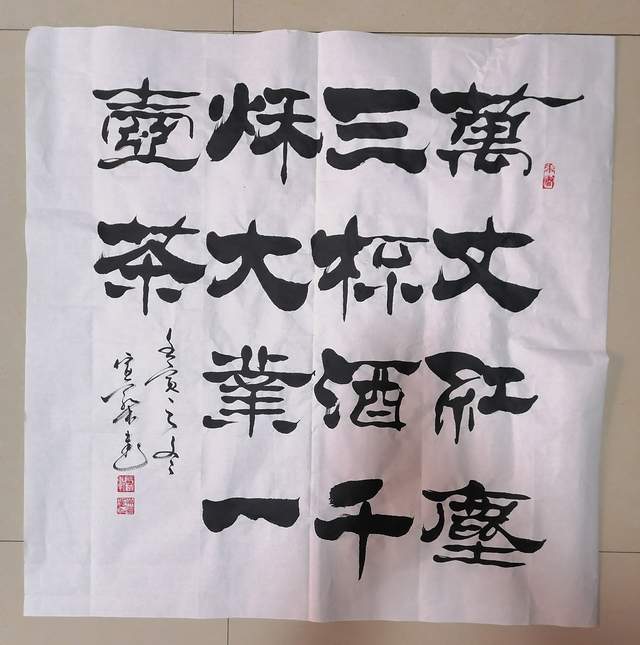 萬丈紅塵
三杯酒千
秌大業一
壺茶
壬寅之冬